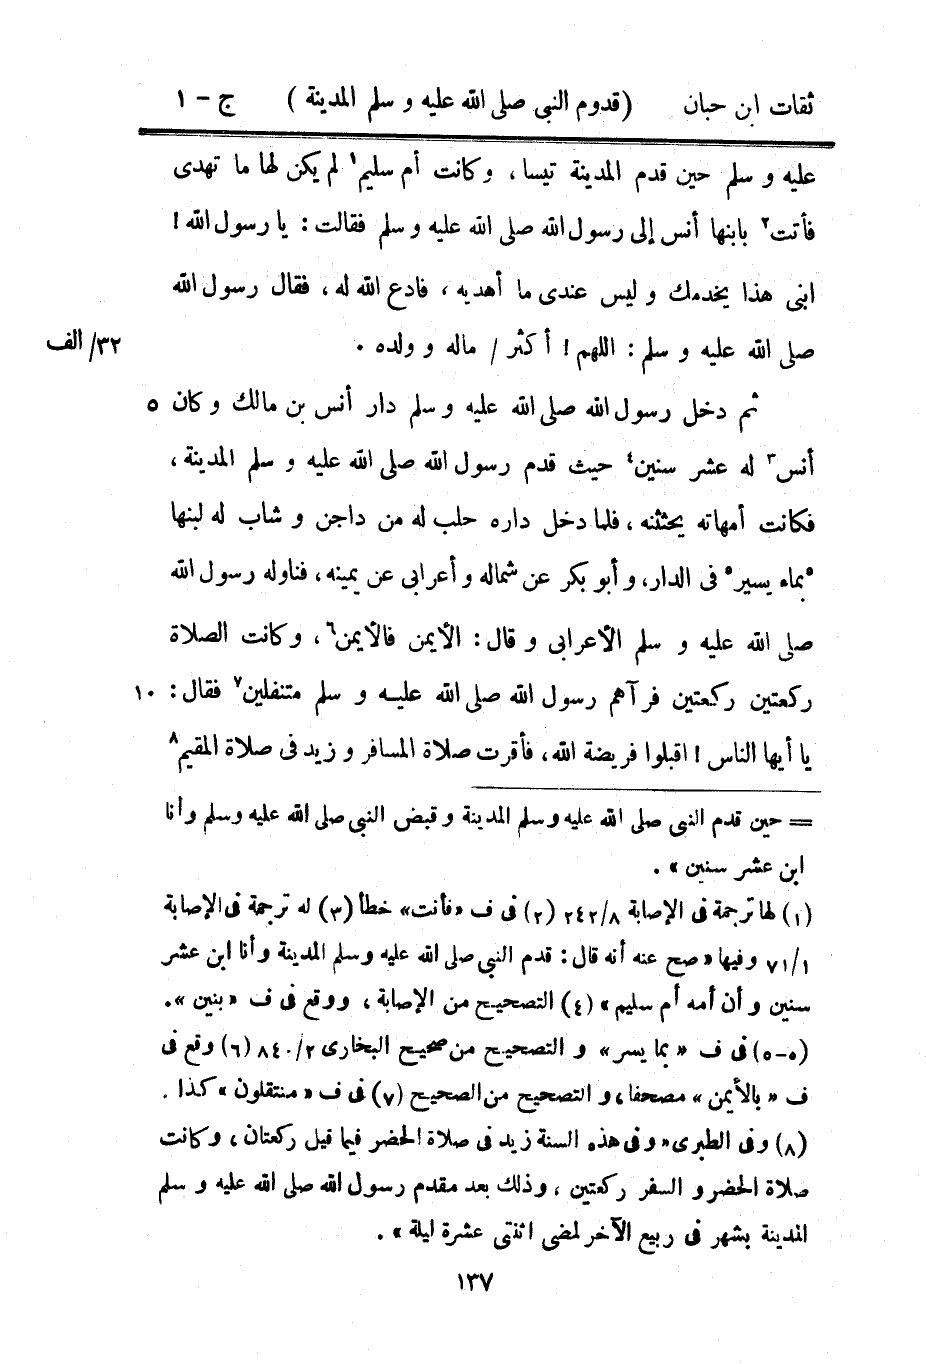 ثقات ابن حبان (قدوم النبى صلى الله عليه و سلم المدينة) ج - ١
عليه و سلم حين قدم المدينة تيسا، وكانت أم سليم١ لم يكن لها ما تهدى
فأتت٢ بابنها أنس إلى رسول الله صلى الله عليه و سلم فقالت: يا رسول الله!
ابنى هذا يخدمك و ليس عندى ما أهديه، فادع الله له، فقال رسول الله
صلى الله عليه و سلم: اللهم! أكثر / ماله و ولده. ٣٢/ الف
ثم دخل رسول الله صلى الله عليه و سلم دار أنس بن مالك وكان ٥
أنس٣ له عشر سنين٤ حيث قدم رسول الله صلى الله عليه و سلم المدينة،
فكانت أمهاته يحثثنه، فلما دخل داره حلب له من داجن و شاب له لبنها
٥بماء يسير٥ فى الدار، و أبو بكر عن شماله و أعرابى عن يمينه، فناوله رسول الله
صلى الله عليه و سلم الأعرابى و قال: الأيمن فالأيمن٦، وكانت الصلاة
ركعتين ركعتين فرآهم رسول الله صلى الله عليه و سلم متنفلين٧ فقال: ١٠
يا أيها الناس! اقبلوا فريضة الله، فأقرت صلاة المسافر و زيد فى صلاة المقيم٨
= حين قدم النبى صلى الله عليه وسلم المدينة و قبض النبى صلى الله عليه وسلم وأنا
ابن عشر سنين».
(١) لها ترجمة فى الإصابة ٢٤٢/٨ (٢) فى ف «فأنت» خطأ (٣) له ترجمة فى الإصابة
٧١/١ وفيها «صح عنه أنه قال: قدم النبى صلى الله عليه وسلم المدينة وأنا ابن عشر
سنين و أن أمه أم سليم» (٤) التصحيح من الإصابة، ووقع فى ف «بنين».
(٥-٥) فى ف «بما يسر» و التصحيح من صحيح البخارى ٨٤٠/٢ (٦) وقع فى
ف «بالأيمن» مصحفا، و التصحيح من الصحيح (٧) فى ف «منتقلون» كذا.
(٨) وفى الطبرى «وفى هذه السنة زيد فى صلاة الحضر فيما قيل ركعتان، وكانت
صلاة الحضر و السفر ركعتين، وذلك بعد مقدم رسول الله صلى الله عليه و سلم
المدينة بشهر فى ربيع الآخر لمضى اثنتى عشرة ليلة».
١٣٧